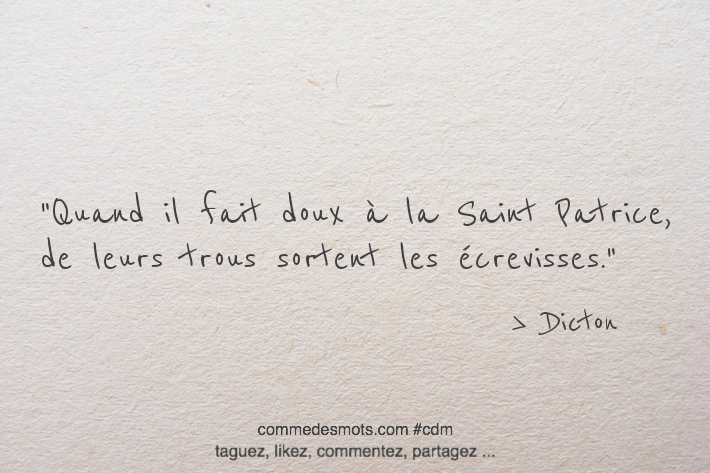 "Quand il fait doux à la Saint Patrice,
de leurs trous sortent les écrevisses."
> Dicton
commedesmots.com #cdm
taguez, likez, commentez, partagez ...